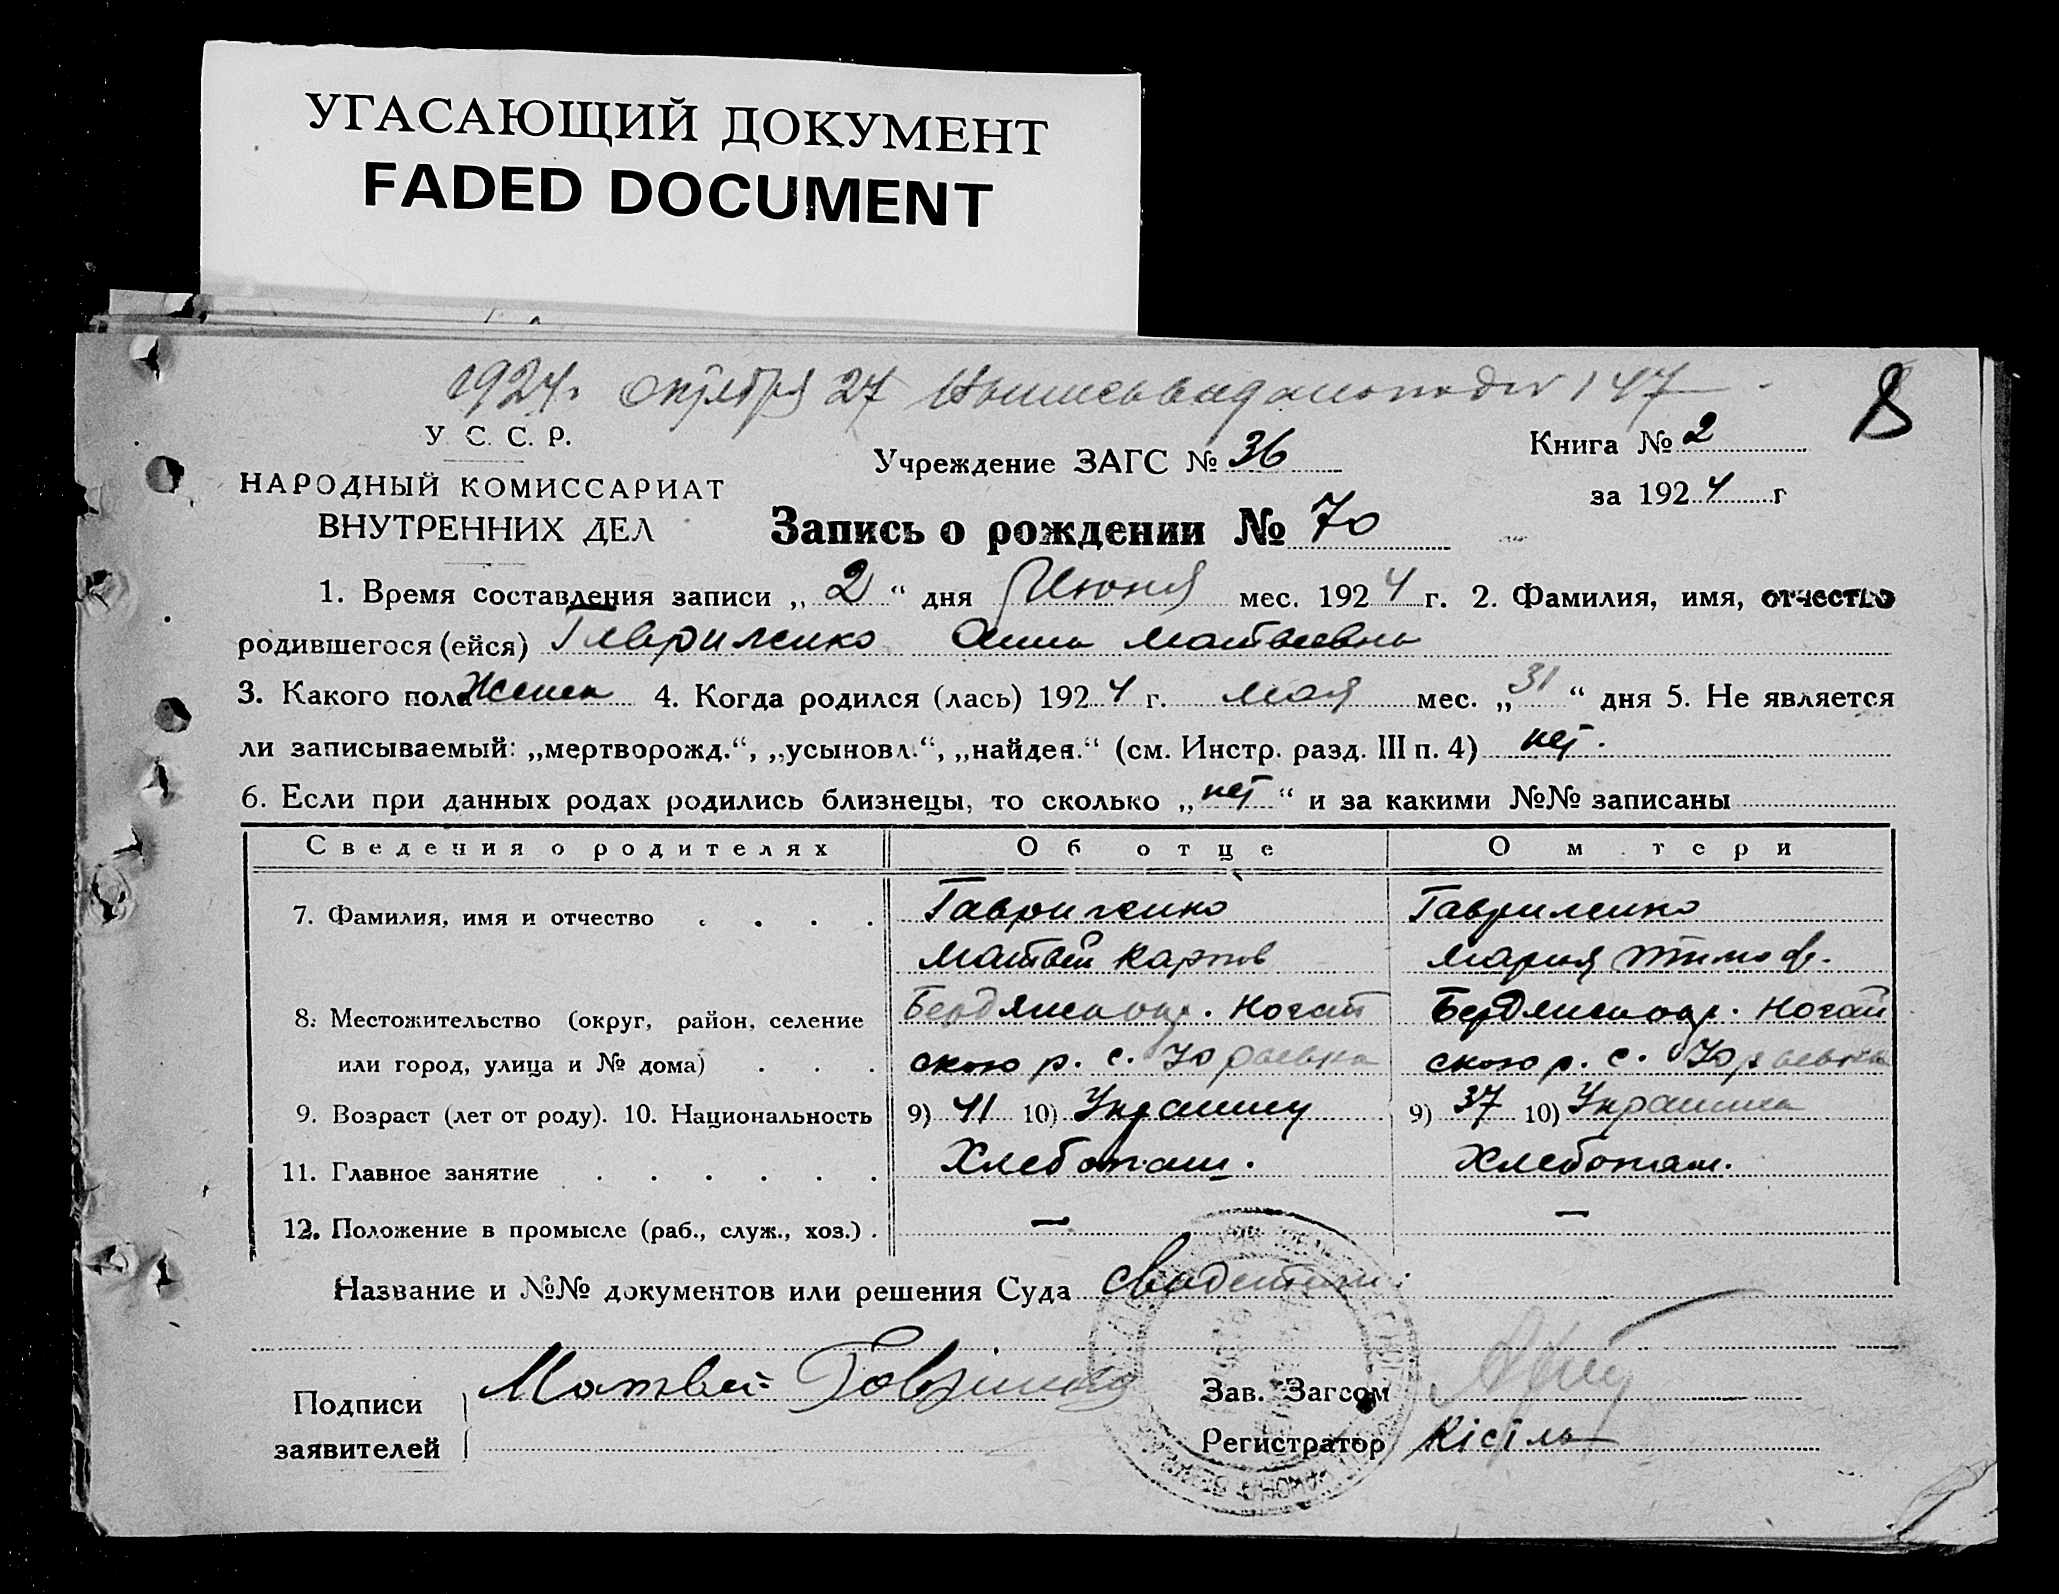 УГАСАЮЩИЙ ДОКУМЕНТ
FADED DOCUMENT
1924 г. октября 27 147
8
У. С. С. Р.
НАРОДНЫЙ КОМИССАРИАТ
ВНУТРЕННИХ ДЕЛ
Учреждение ЗАГС № 36
Книга № 2
за 1924 г
Запись о рождении № 70
1. Время составления записи „ 2 “ дня Июня мес. 1924 г. 2. Фамилия, имя, отчество
родившегося (ейся) Гавриленко Анна Матвеевна
3. Какого пола Женск 4. Когда родился (лась) 1924 г. мая мес. „ 31 “ дня 5. Не является
ли записываемый: „мертворожд.“, „усыновл.“, „найден.“ (см. Инстр. разд. III п. 4) нет.
6. Если при данных родах родились близнецы, то сколько „ нет “ и за какими №№ записаны
Сведения о родителях Об отце О м тери
7. Фамилия, имя и отчество Гавриленко Гавриленко
Матвей Карпов Мария Тимоф.
8. Местожительство (округ, район, селение Бердянск окр. Ногай Бердянск окр. Ногай
или город, улица и № дома) ского р. с. Юрьевка ского р. с. Юрьевка
9. Возраст (лет от роду). 10. Национальность 9) 41 10) Украинц 9) 37 10) Украинка
11. Главное занятие Хлебопаш. Хлебопаш.
12. Положение в промысле (раб., служ., хоз.) — —
Название и №№ документов или решения Суда
Подписи
заявителей
Матвей
Зав. Загсом
Регистратор Кісіль